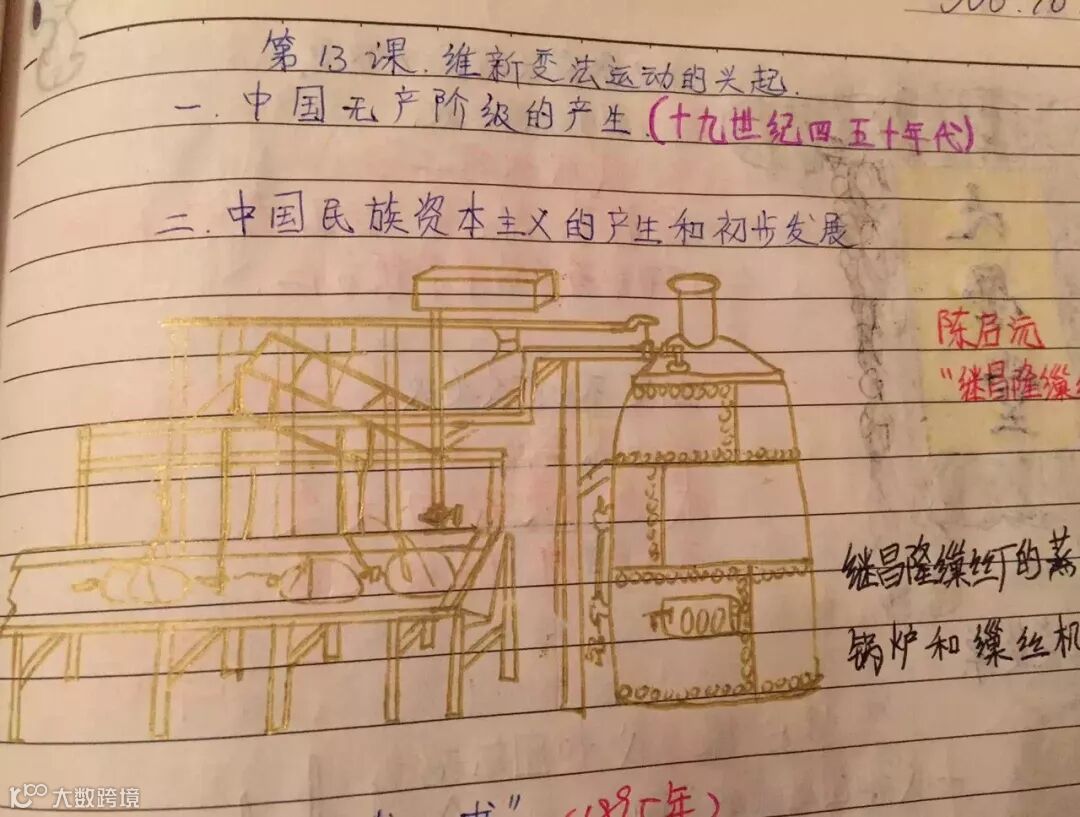 第13课.维新变法运动的兴起.
一.中国无产阶级的产生(十九世纪四.五十年代)
二.中国民族资本主义的产生和初步发展
陈启沅
"继昌隆缫
继昌隆缫丝厂的蒸
锅炉和缫丝机
书"(1895年)
大数跨境